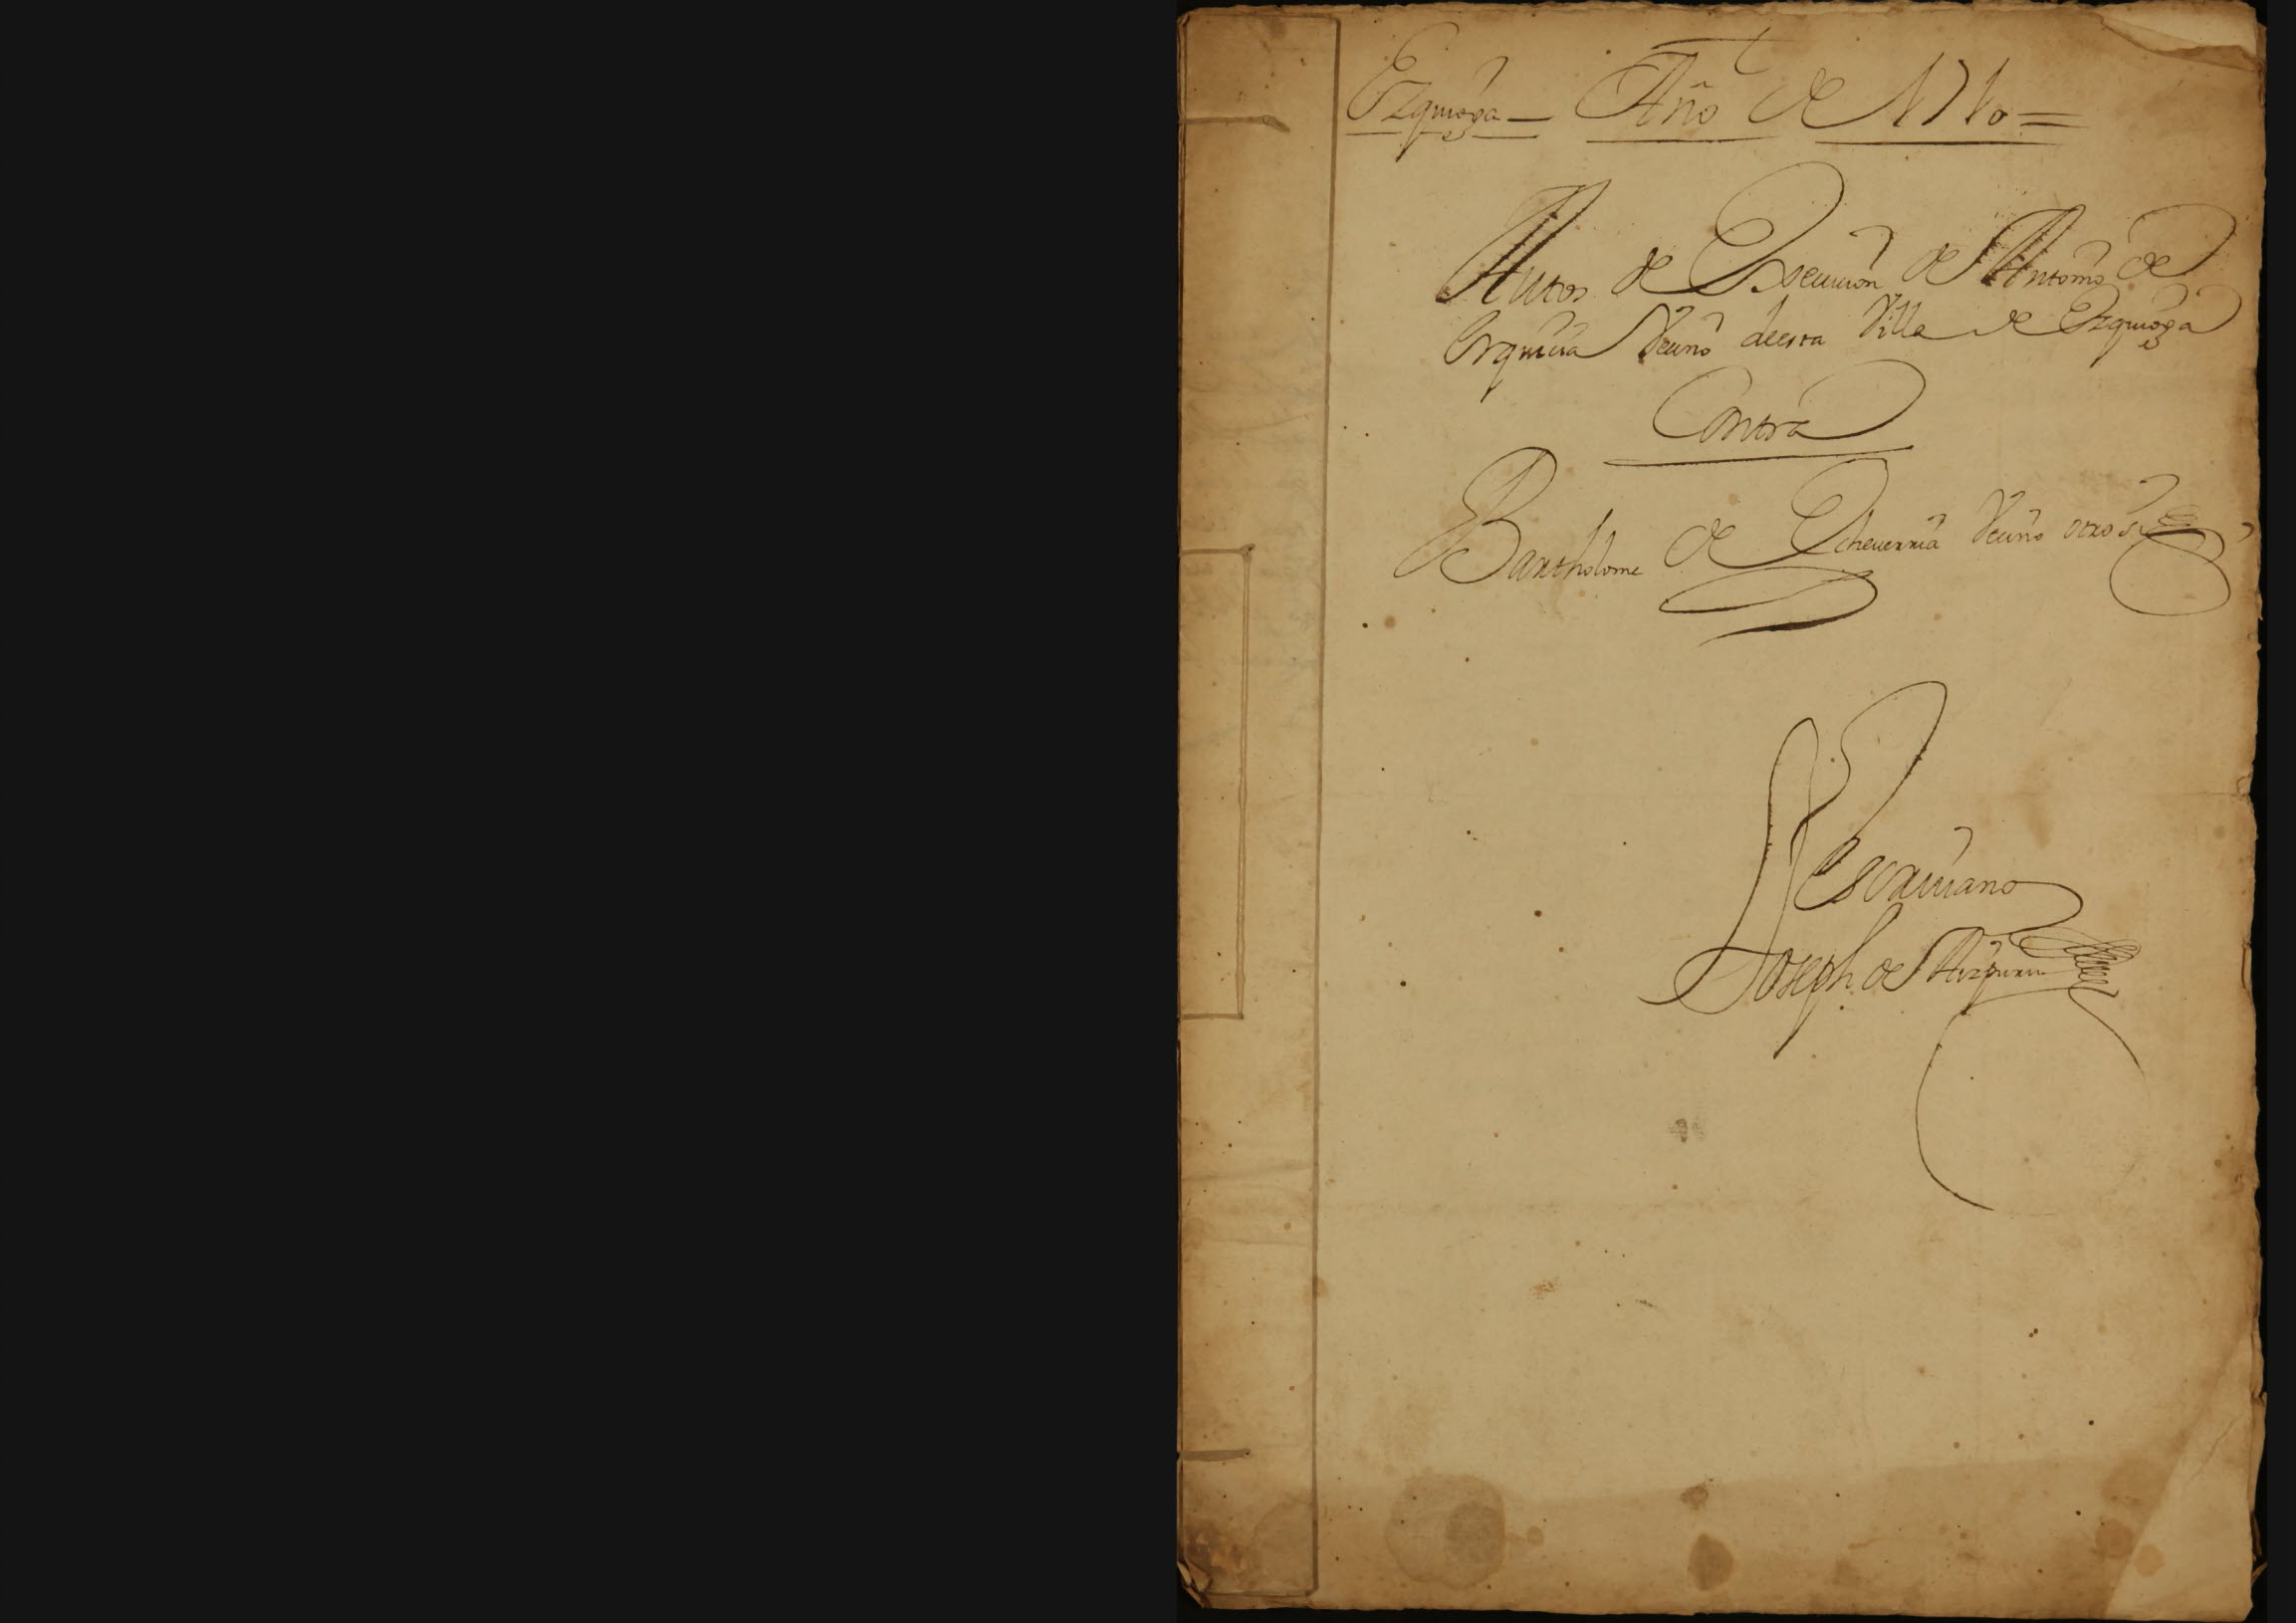 Ezquioga — Año de 1710 =
Autos de Execucion de Antonio de
Urquicia Vecino deesta Villa de Ezquioga
Contra
Bartholome de Echeverria Vecino otrosi
Escriuano
Joseph de Aizpuru